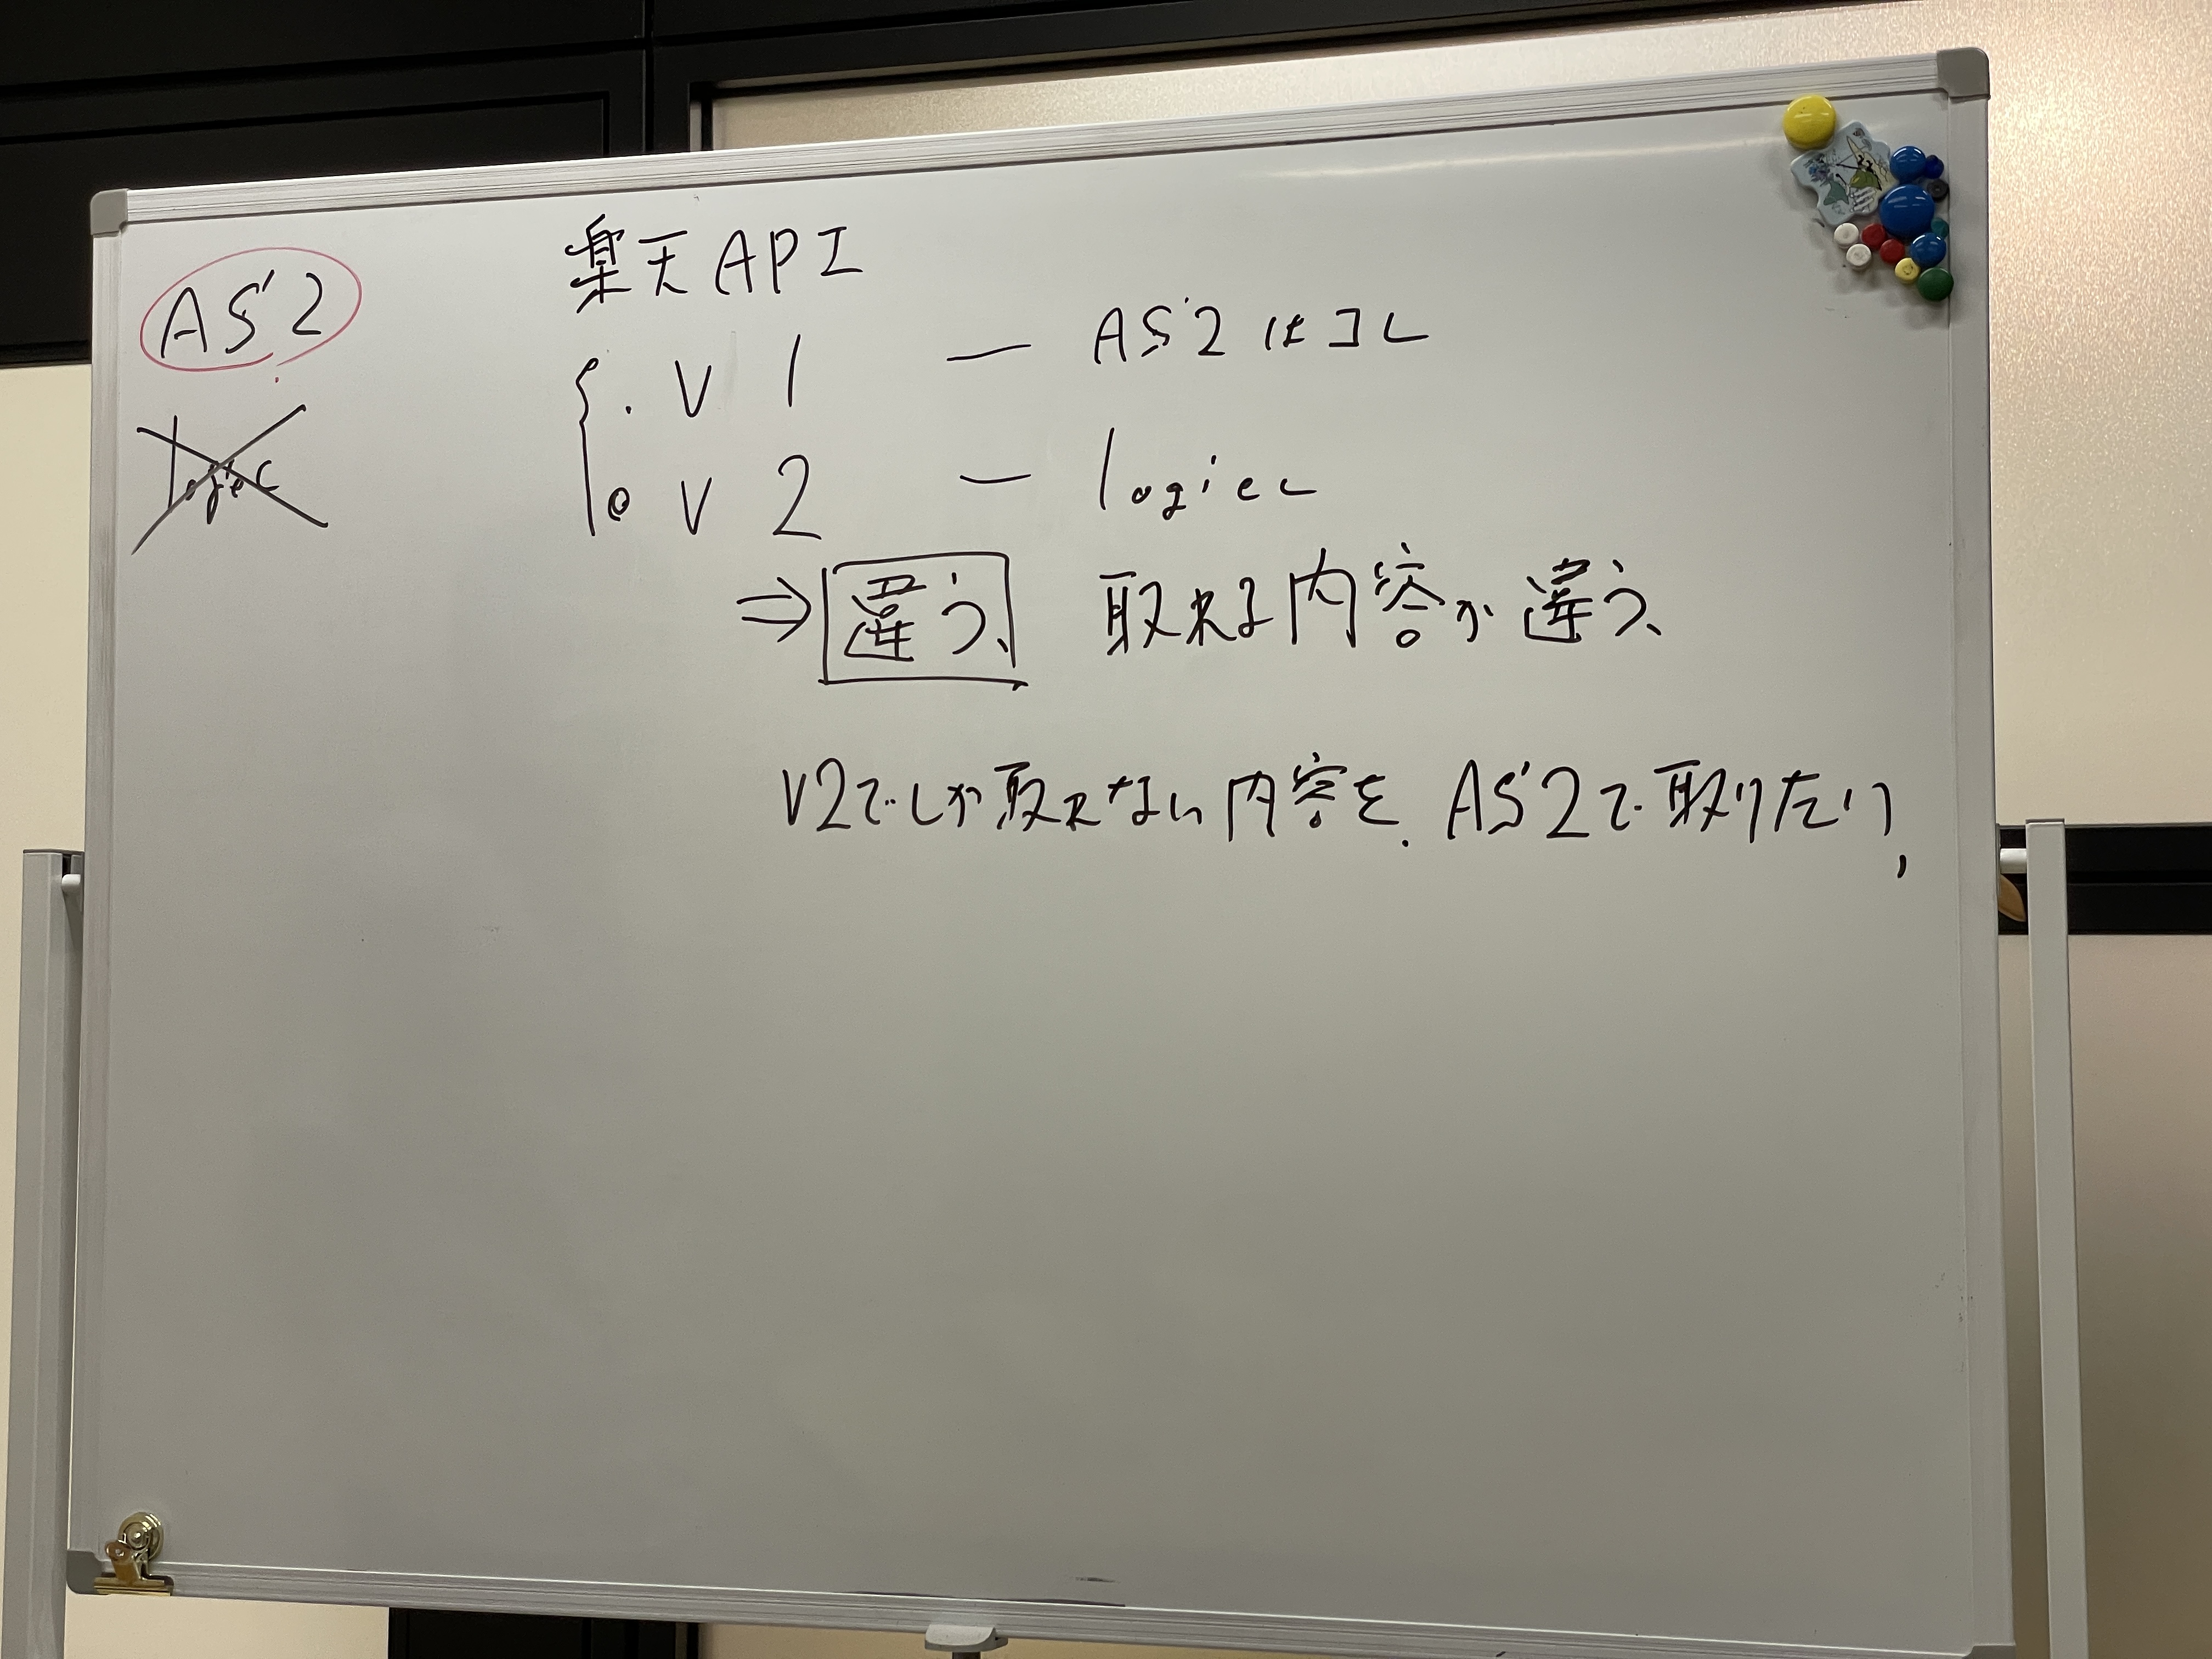 AS2
logiec
楽天API
・V1 — AS2はコレ
・V2 — logiec
⇒ 違う、 取れる内容が違う、
V2でしか取れない内容を、AS2で取りたい,